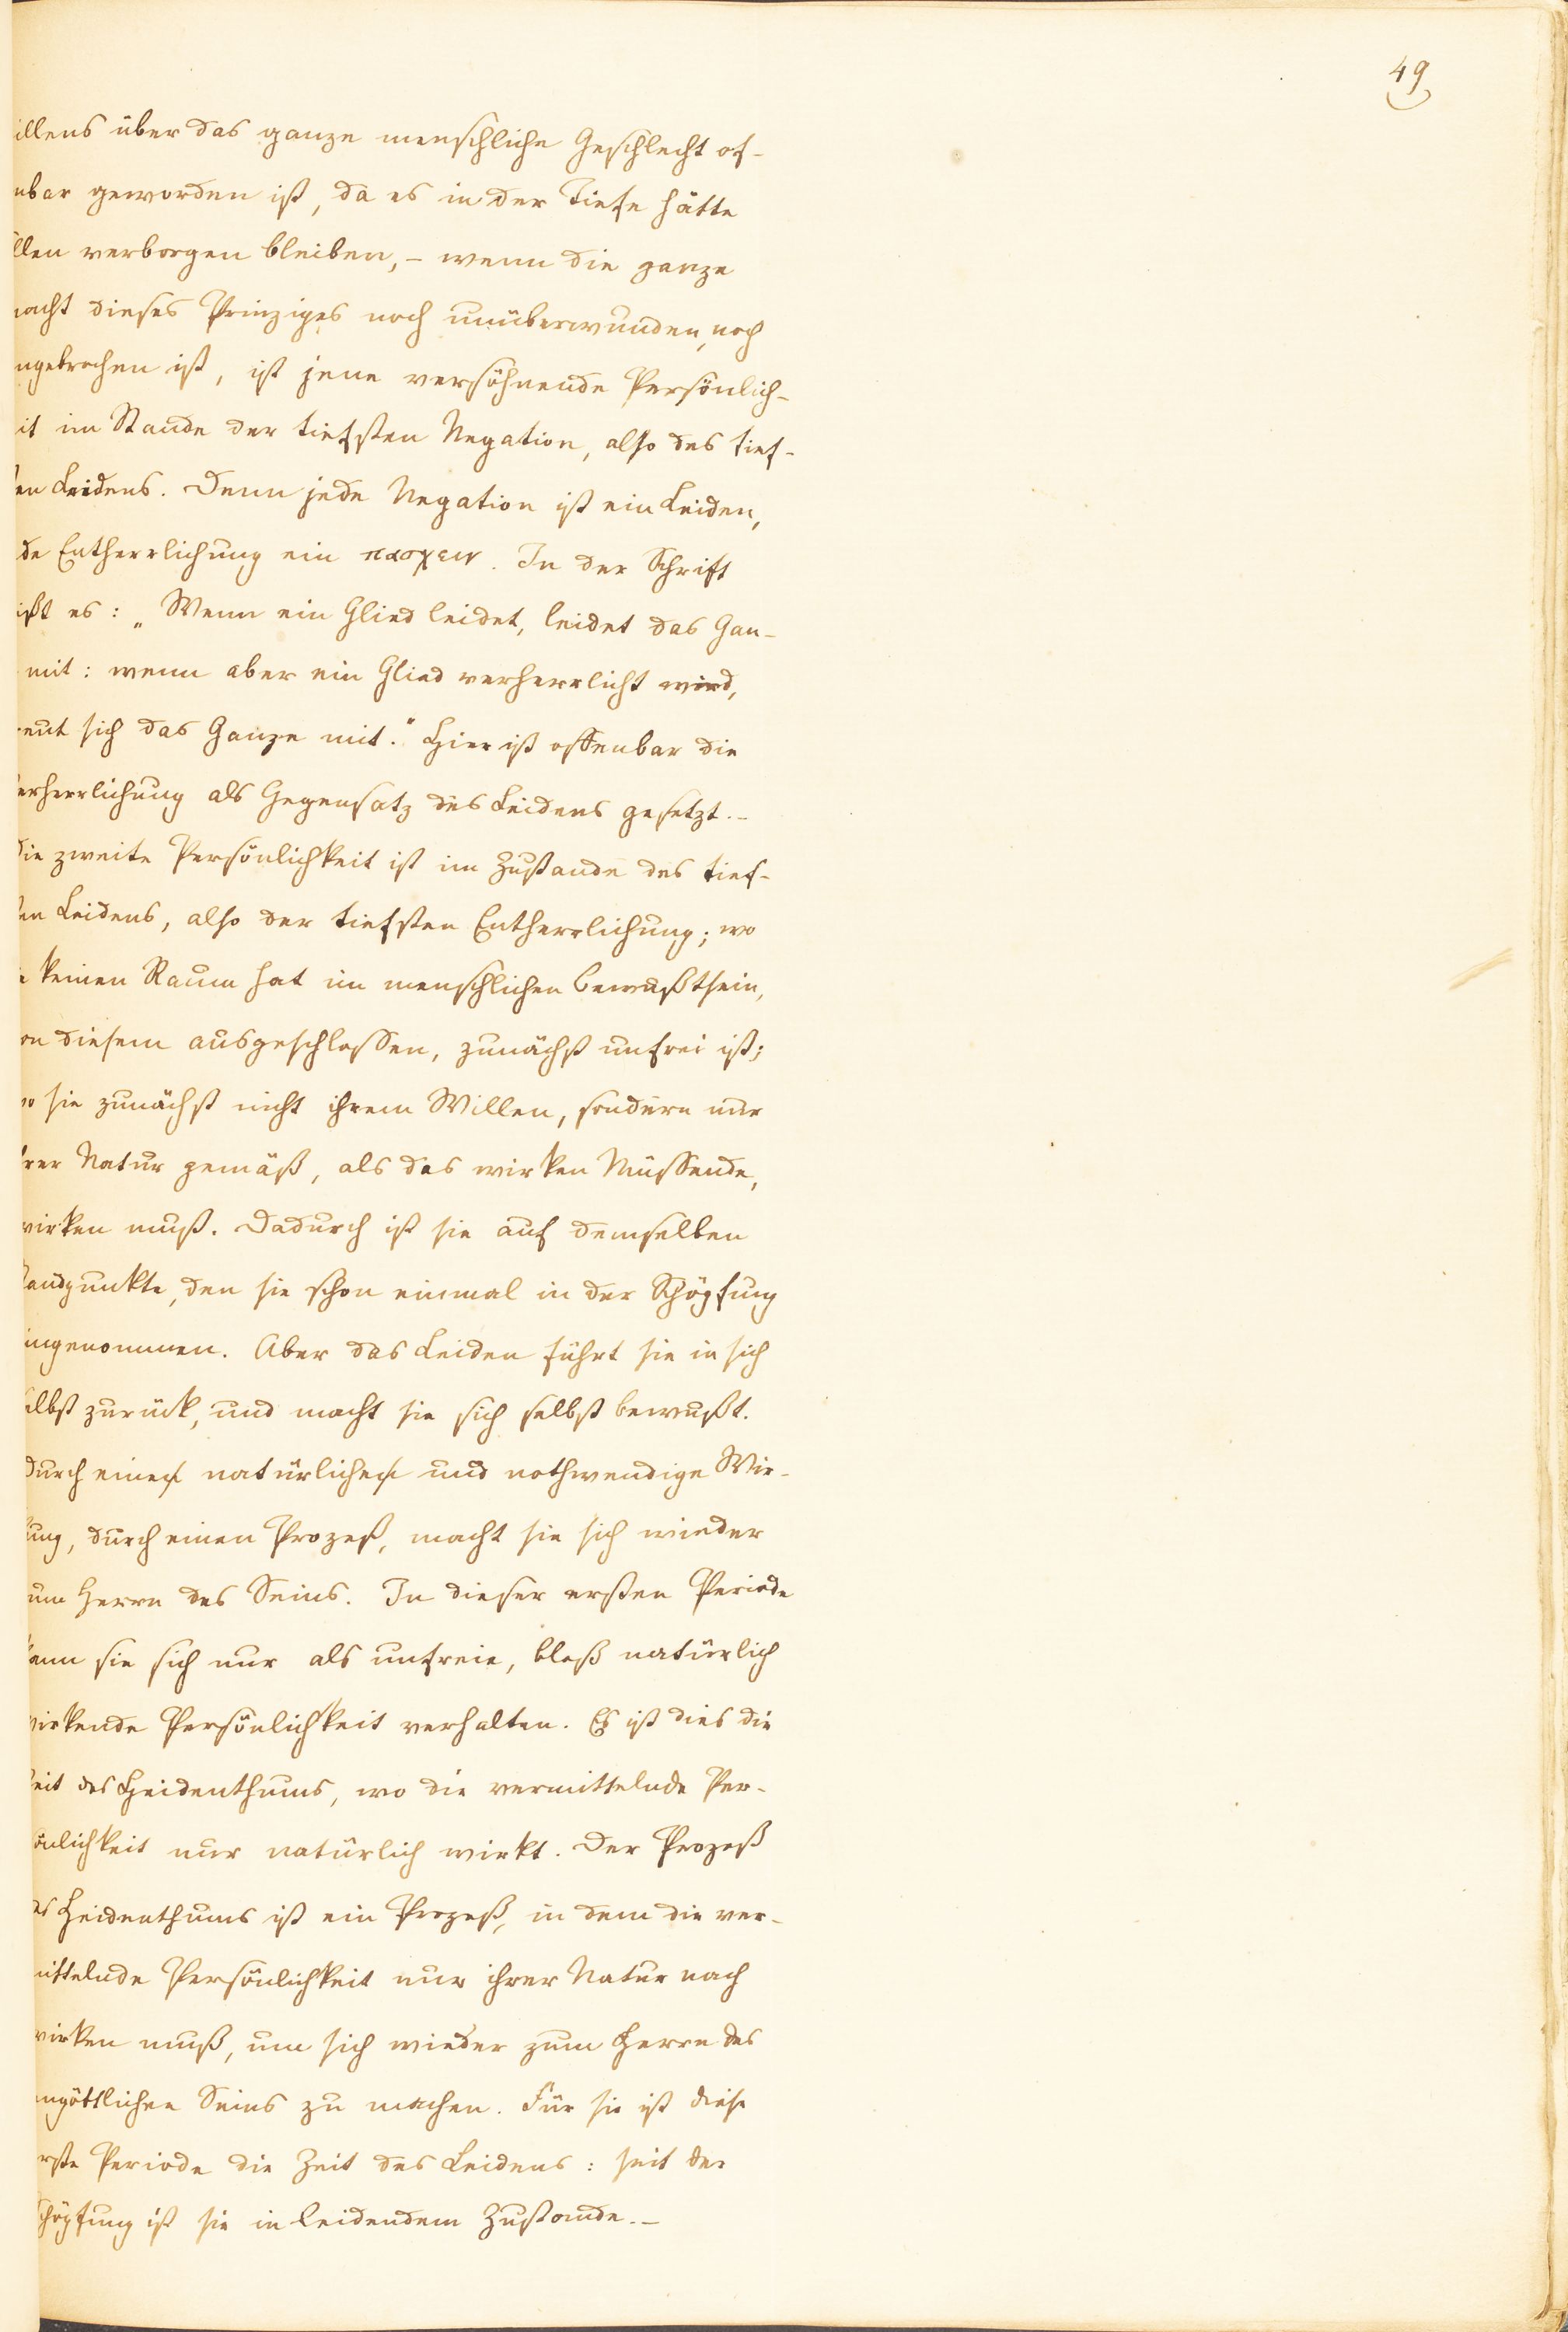 49
illens über das ganze menschliche Geschlecht of-
nbar geworden ist, da es in der Tiefe hätte
llen verborgen bleiben, - wenn die ganze
acht dieses Prinzipes noch unüberwunden, noch
ngebrochen ist, ist jene versöhnende Persönlich-
it im Stande der tiefsten Negation, also des tief-
en Leidens. Denn jede Negation ist ein Leiden,
de Entherrlichung ein πασχειν. In der Schrift
ißt es: „Wenn ein Glied leidet, leidet das Gan-
mit: wenn aber ein Glied verherrlicht wird,
eut sich das Ganze mit.“ Hier ist offenbar die
erherrlichung als Gegensatz des Leidens gesetzt. -
die zweite Persönlichkeit ist im Zustande des tief-
en Leidens, also der tiefsten Entherrlichung; wo
keinen Raum hat im menschlichen Bewußtsein,
on diesem ausgeschlossen, zunächst unfrei ist;
o sie zunächst nicht ihrem Willen, sondern nur
rer Natur gemäß, als das wirken Müssende,
wirken muß. Dadurch ist sie auf demselben
andpunkte, den sie schon einmal in der Schöpfung
ingenommen. Aber das Leiden führt sie in sich
elbst zurück, und macht sie sich selbst bewußt.
durch eine natürliche und nothwendige Wir-
ung, durch einen Prozeß, macht sie sich wieder
um Herrn des Seins. In dieser ersten Periode
kann sie sich nur als unfreie, bloß natürlich
wirkende Persönlichkeit verhalten. Es ist dies die
eit des Heidenthums, wo die vermittelnde Per-
önlichkeit nur natürlich wirkt. Der Prozeß
es Heidenthums ist ein Prozeß, in dem die ver-
ittelnde Persönlichkeit nur ihrer Natur nach
wirken muß, um sich wieder zum Herrn des
ngöttlichen Seins zu machen. Für sie ist diese
rste Periode die Zeit des Leidens: seit der
chöpfung ist sie in leidendem Zustande. -